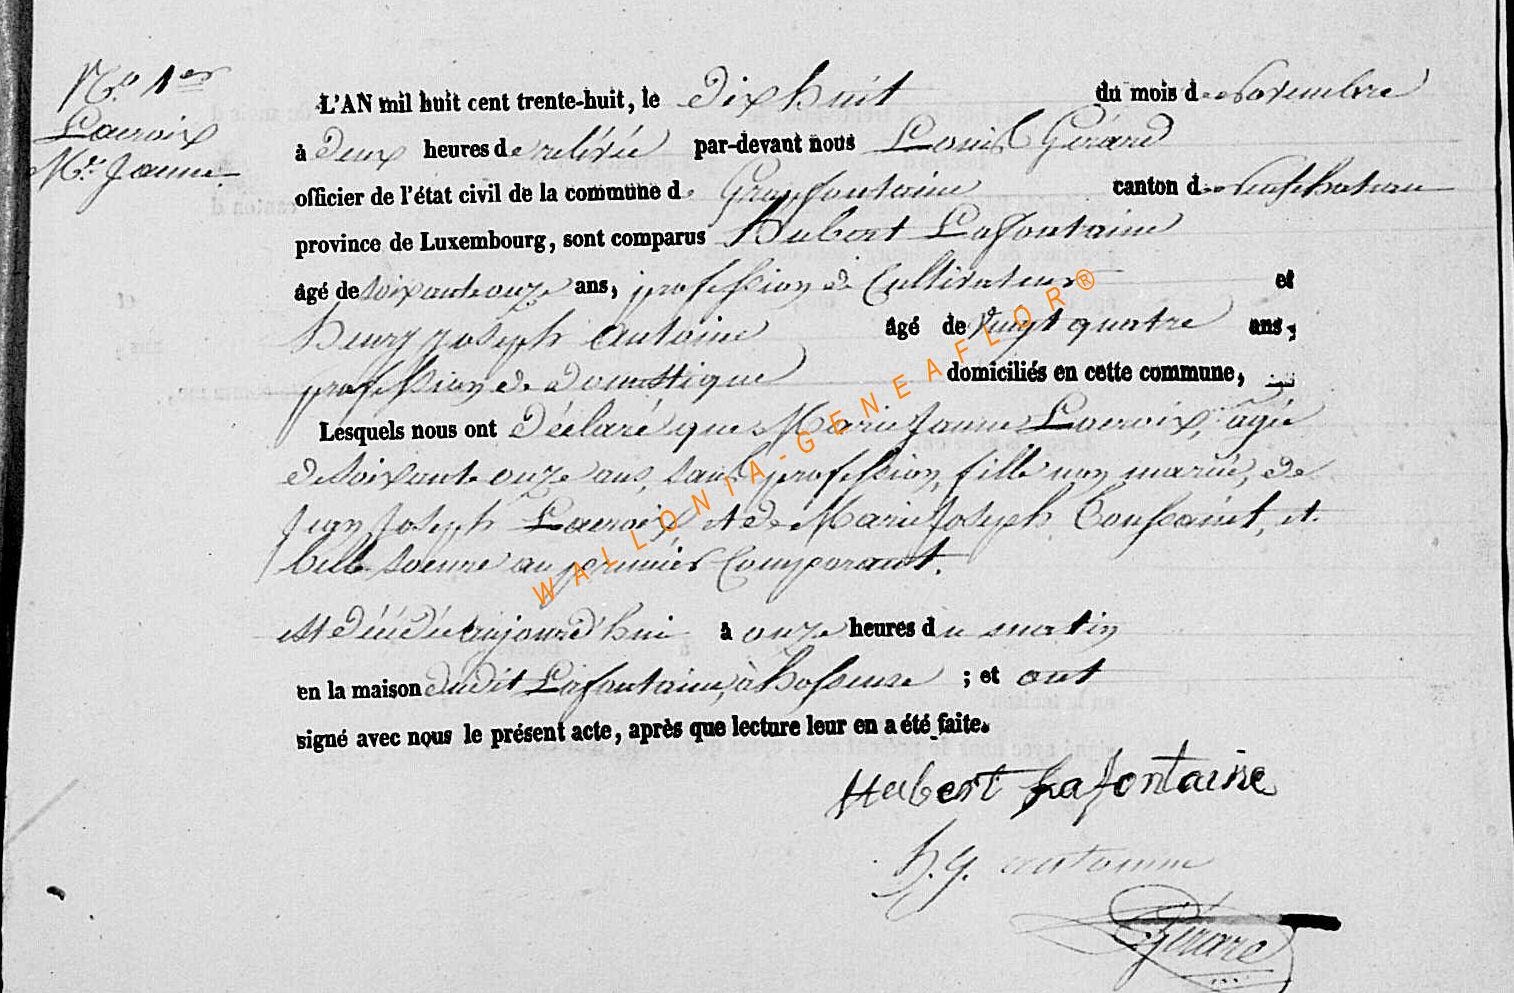 N.º 1er
Lacroix
Mie Jeanne
L'AN mil huit cent trente-huit, le Dix huit du mois de novembre
à Deux heures de relevée par-devant nous Louis Gérard
officier de l'état civil de la commune de Grapfontaine canton de neufchateau
province de Luxembourg, sont comparus Hubert Lafontaine
âgé de soixante onze ans, profession de Cultivateur et
henry joseph antoine âgé de Vingt quatre ans,
profession de domestique domiciliés en cette commune,
Lesquels nous ont Déclaré que Marie Jeanne Lacroix, âgée
de soixante onze ans, sans profession, fille non mariée, de
Jean Joseph Lacroix et de Marie Joseph Toussaint, et
belle soeure au premier Comparant.
est décédée aujourd'hui à onze heures du matin
en la maison dudit Lafontaine, à hosseuse ; et ont
signé avec nous le présent acte, après que lecture leur en a été faite.
Hubert Lafontaine
h. j. antoine
Gérard
WALLONIA-GENEAFLOR®